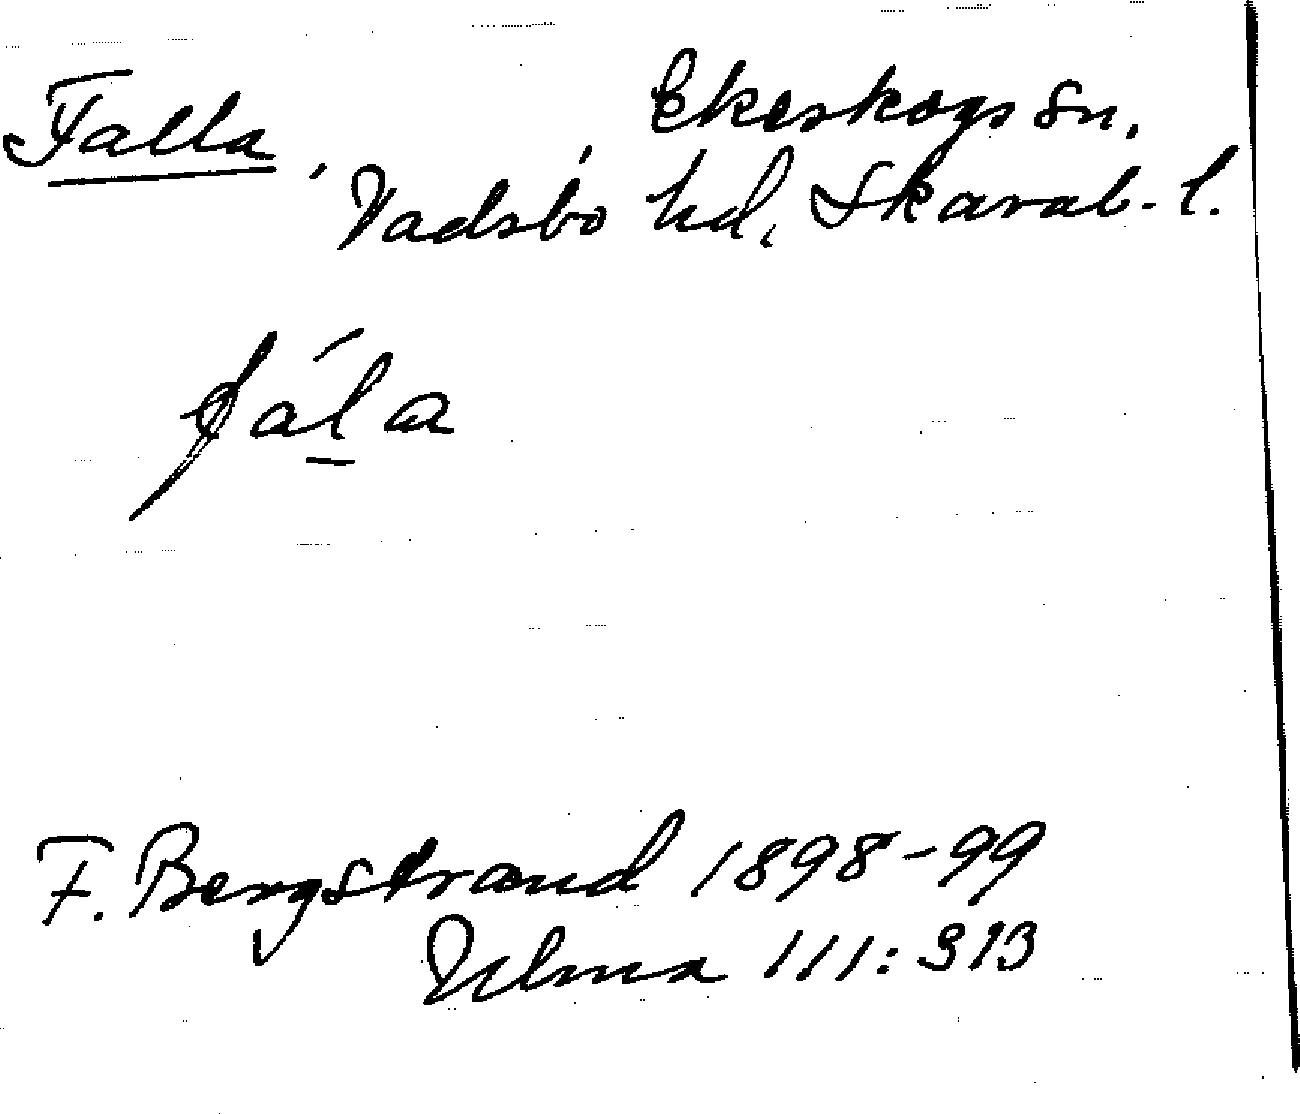 Falla, Ekeskogs Sn.
Vadsbo hd, Skarab-l.
fál̲a
F. Bergstrand 1898-99
Ulma 111:313